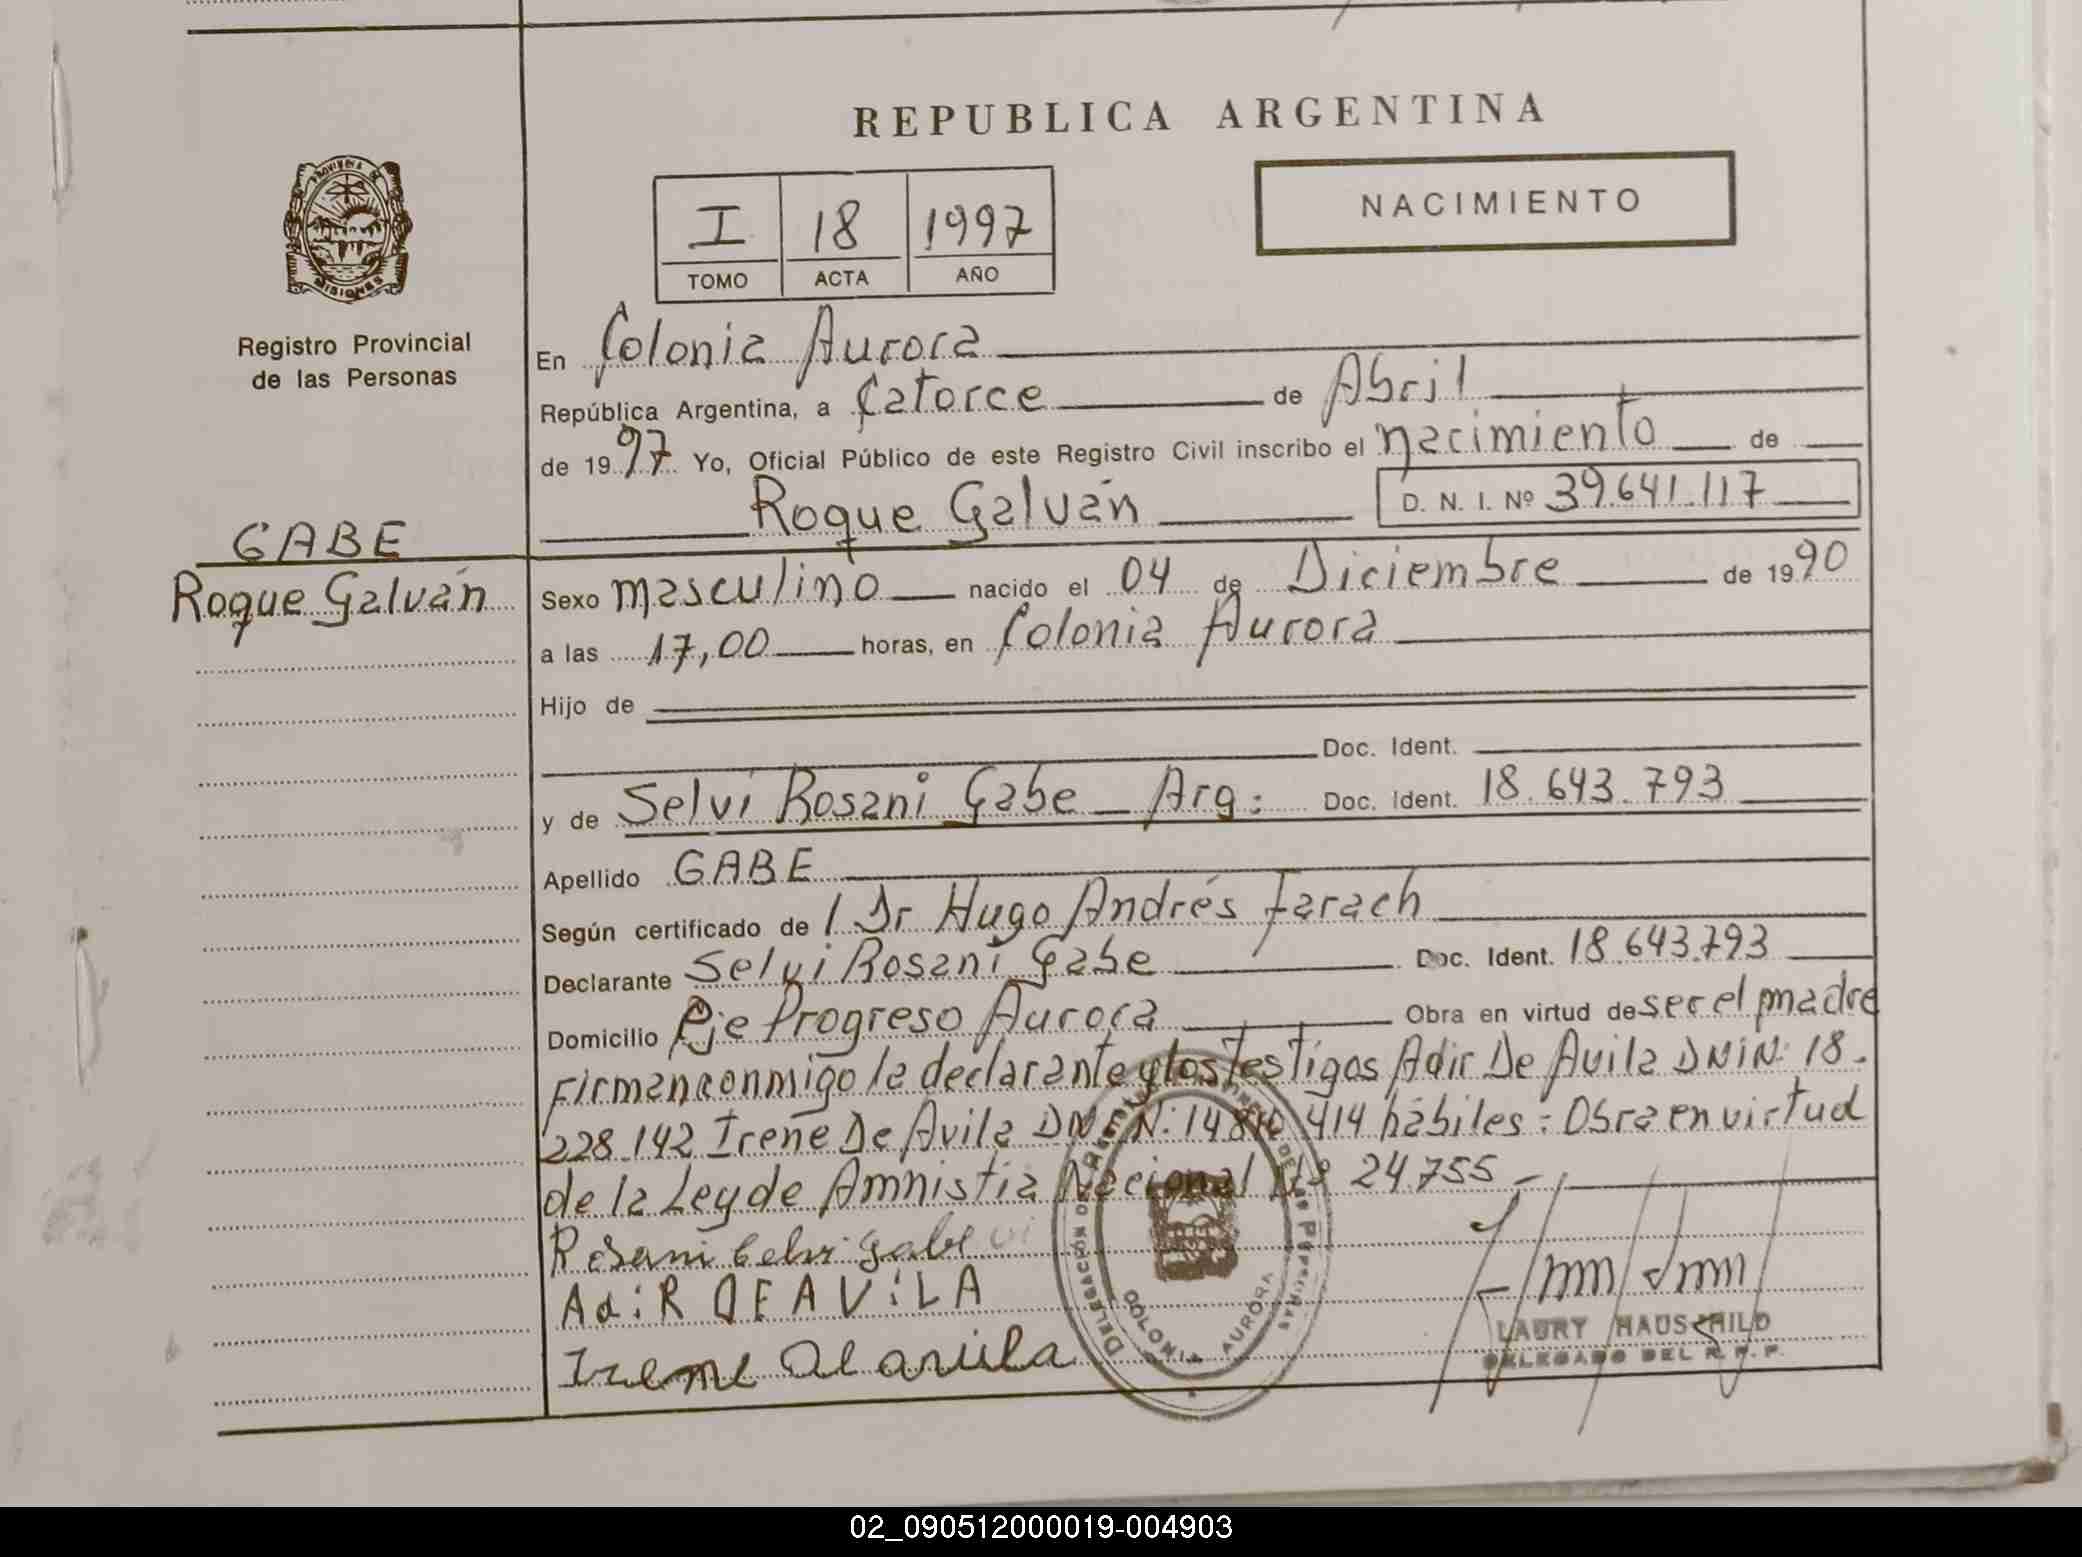 REPUBLICA ARGENTINA
PROVINCIA DE
MISIONES
Registro Provincial
de las Personas
I 18 1997
TOMO ACTA AÑO
NACIMIENTO
En Colonia Aurora
República Argentina, a Catorce de Abril
de 1997 Yo, Oficial Público de este Registro Civil inscribo el nacimiento de
Roque Galván D. N. I. Nº 39.641.117
GABE
Roque Galván
Sexo masculino nacido el 04 de Diciembre de 1990
a las 17,00 horas, en Colonia Aurora
Hijo de
Doc. Ident.
y de Selvi Rosani Gabe Arg: Doc. Ident. 18.643.793
Apellido GABE
Según certificado de / Dr Hugo Andrés Farach
Declarante Selvi Rosani Gabe Doc. Ident. 18.643.793
Domicilio Pje Progreso Aurora Obra en virtud de ser el madre
Firman conmigo la declarante y los Testigos Adir De Avila DNIN: 18.
228.142 Irene De Avila DNIN: 14 414 hábiles: Obra en virtud
de la Ley de Amnistia Nacional Nº 24.755 -
Rosani Celvi Gabe
AdiR DE AViLA
Irene De avila
DELEGACIÓN DE LAS PERSONAS
COLONIA AURORA
LAURY HAUSCHILD
DELEGADO DEL R. P. P.
02_090512000019-004903